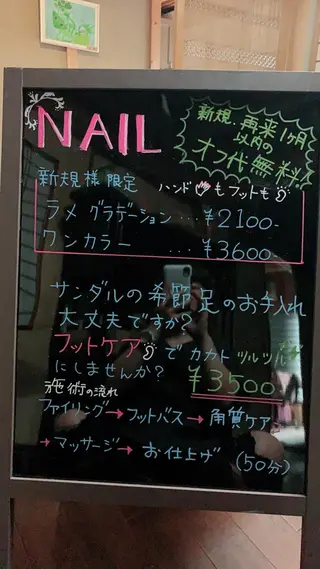 NAIL
新規..再来1ヶ月
以内の
オフ代無料!
新規様限定 ハンドもフットも
ラメグラデーション...¥2100-
ワンカラー ...¥3600-
サンダルの希節足のお手入れ
大丈夫ですか?
フットケアでカカトツルツル
にしませんか? ¥3500
施術の流れ
ファイリング→フットバス→角質ケア
→マッサージ→お仕上げ (50分)